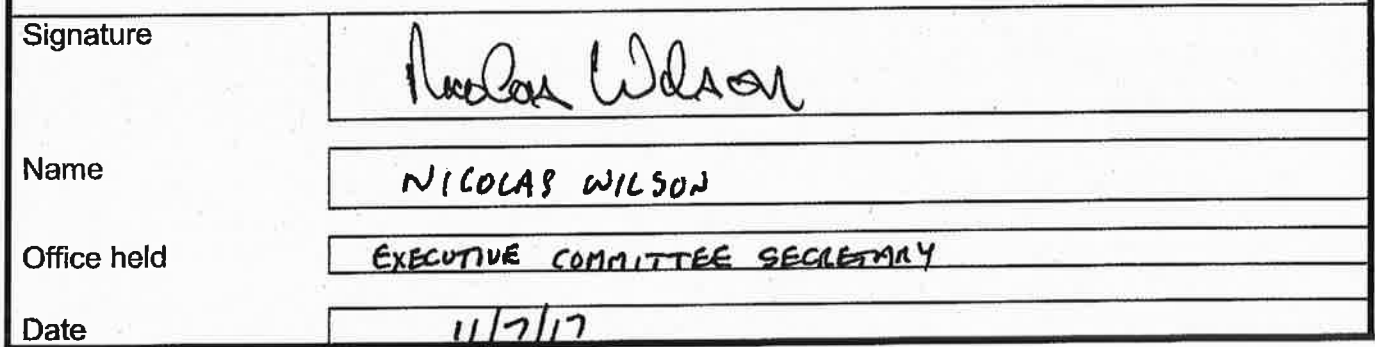 Signature Nicolas Wilson
Name NICOLAS WILSON
Office held EXECUTIVE COMMITTEE SECRETARY
Date 11/7/17